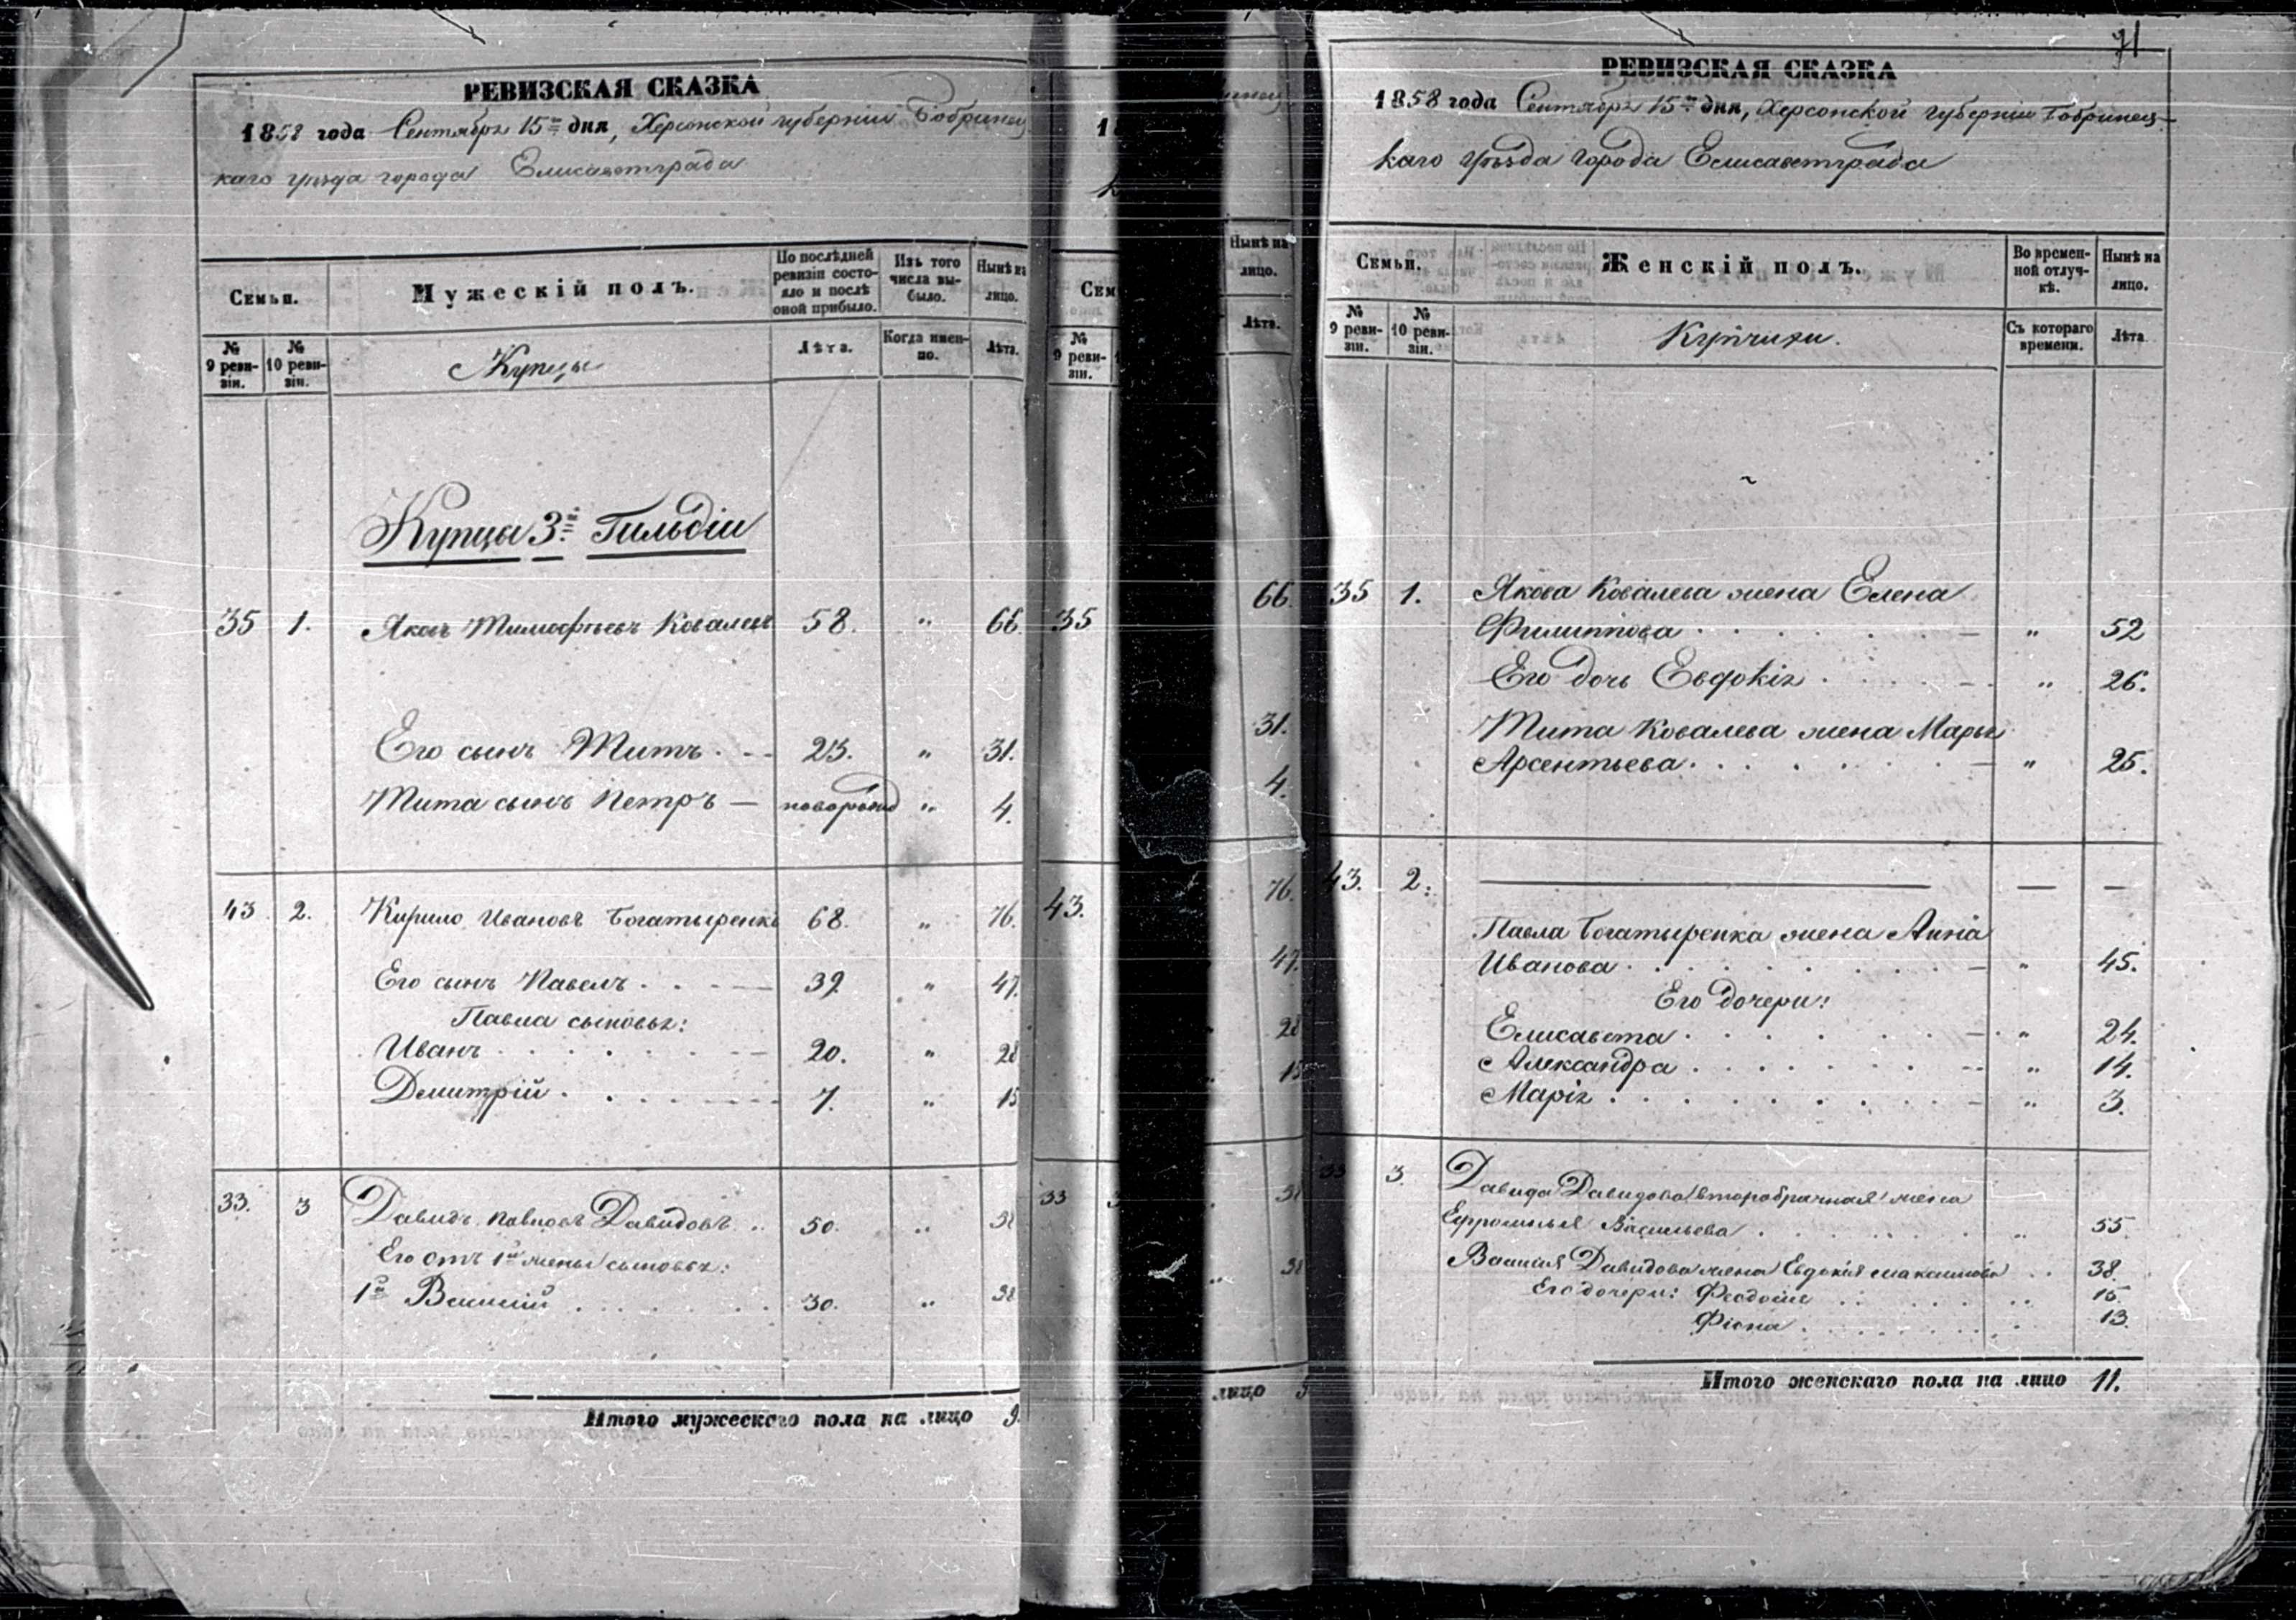 РЕВИЗСКАЯ СКАЗКА
1858 года Сентября 15го дня, Херсонской губерніи Бобринец
каго уѣзда города Елисаветграда
Семьи.
Мужескій полъ.
По послѣдней ревизіи состояло и послѣ оной прибыло.
Изъ того числа выбыло.
Нынѣ на лицо.
№ 9 ревизіи.
№ 10 ревизіи.
Купцы
Лѣта.
Когда именно.
Лѣта.
Купцы 3й Гильдіи
35 1. Яковъ Тимофѣевъ Ковалевъ 58. " 66.
Его сынъ Титъ 23. " 31.
Тита сынъ Петръ — новорожд " 4.
43 2. Кирило Ивановъ Богатыренко 68. " 76.
Его сынъ Павелъ 39. " 47.
Павла сыновья:
Иванъ 20. " 28
Димитрій 7. " 15
33. 3 Давидъ Давидовъ 50. "
Его отъ 1й жены сыновья:
1й Василій 30. " 38
Итого мужескаго пола на лицо 9.
1
Сем
№ 9 реви-
зіи.
35
43.
33 3
Нынѣ на
лицо.
Лѣта.
66.
31.
4.
76.
47.
28
15
38
лицо 9
71
РЕВИЗСКАЯ СКАЗКА
1858 года Сентября 15го дня, Херсонской губерніи Бобринец-
каго уѣзда города Елисаветграда
Семьи.
Женскій полъ.
Во времен-
ной отлуч-
кѣ.
Нынѣ на
лицо.
№ 9 реви-
зіи.
№ 10 реви-
зіи.
Купчихи.
Съ котораго
времени.
Лѣта
35 1. Якова Ковалева жена Елена
Филиппова " 52
Его дочь Евдокія " 26.
Тита Ковалева жена Марья
Арсентьева " 25.
43. 2. — — —
Павла Богатыренка жена Анна
Иванова " 45.
Его дочери:
Елисавета " 24.
Александра " 14.
Марія " 3.
33 3. Давида Давидова второбрачная жена
Ефросинья Васильева " 55
Василія Давидова жена Евдокія Максимова 38.
Его дочери: Феодосія " 15.
Фіона 13.
Итого женскаго пола на лицо 11.